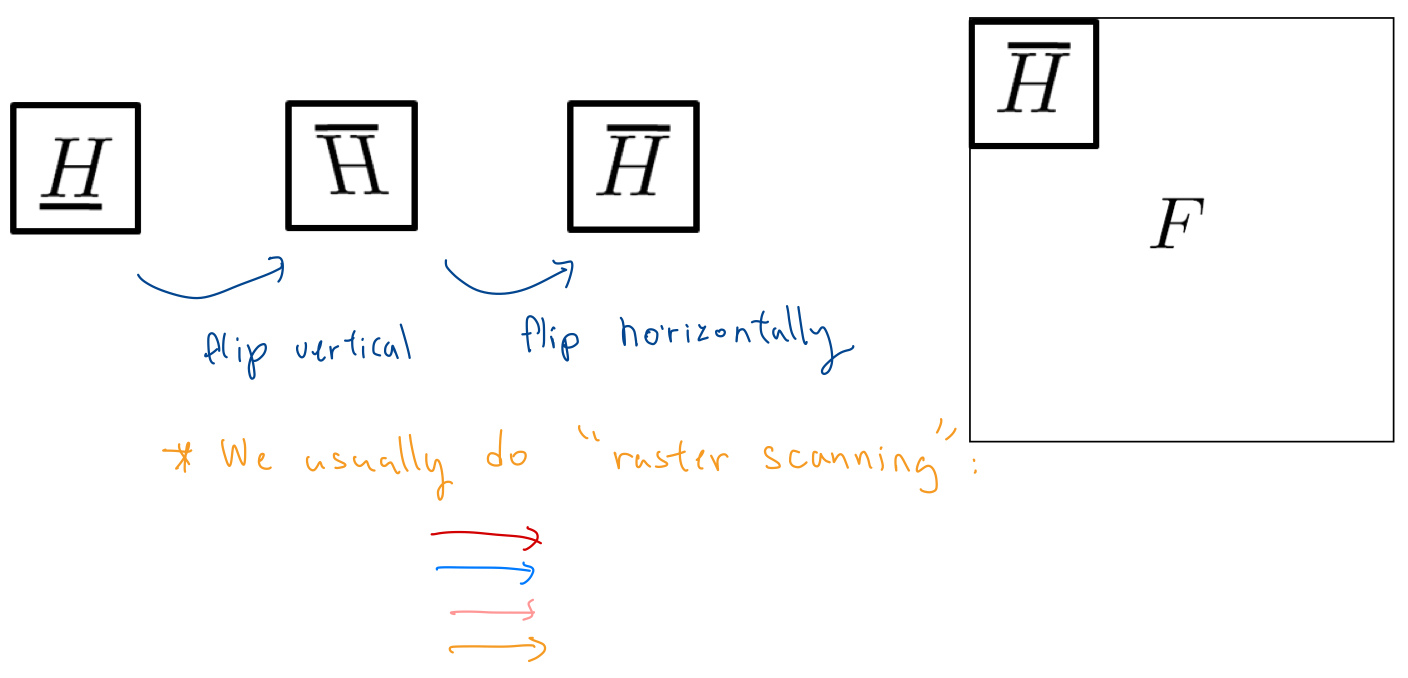 H
H
H
H
F
flip vertical
flip horizontally
* We usually do "raster scanning":